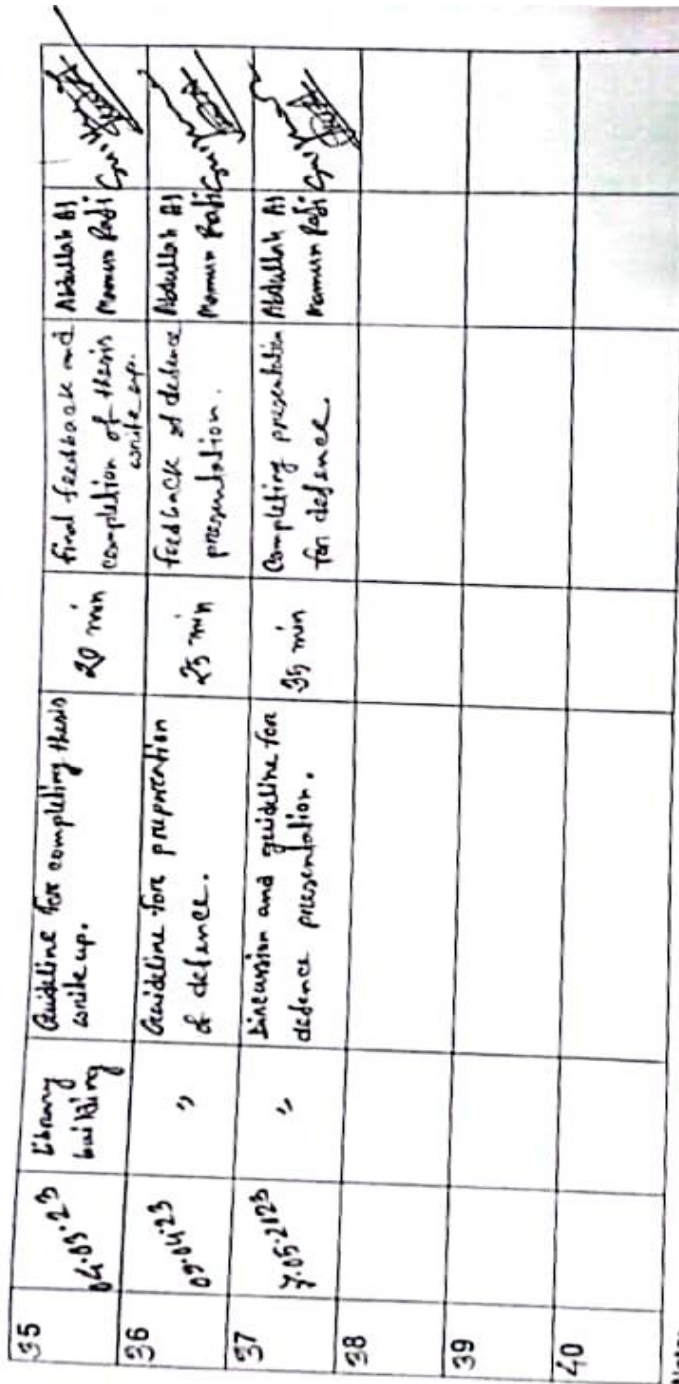 35
04.03.23
Library
building
Guideline for completing thesis
write up.
20 min
Final feedback and
completion of thesis
write up.
Abdullah Al
Mamun Rafi
36
09.04.23
"
Guideline fore preparation
of defence.
25 min
feedback of defence
presentation.
Abdullah Al
Mamun Rafi
37
7.05.2123
"
Discussion and guideline for
defence presentation.
35 min
Completing presentation
for defence.
Abdullah Al
Mamun Rafi
38
39
40